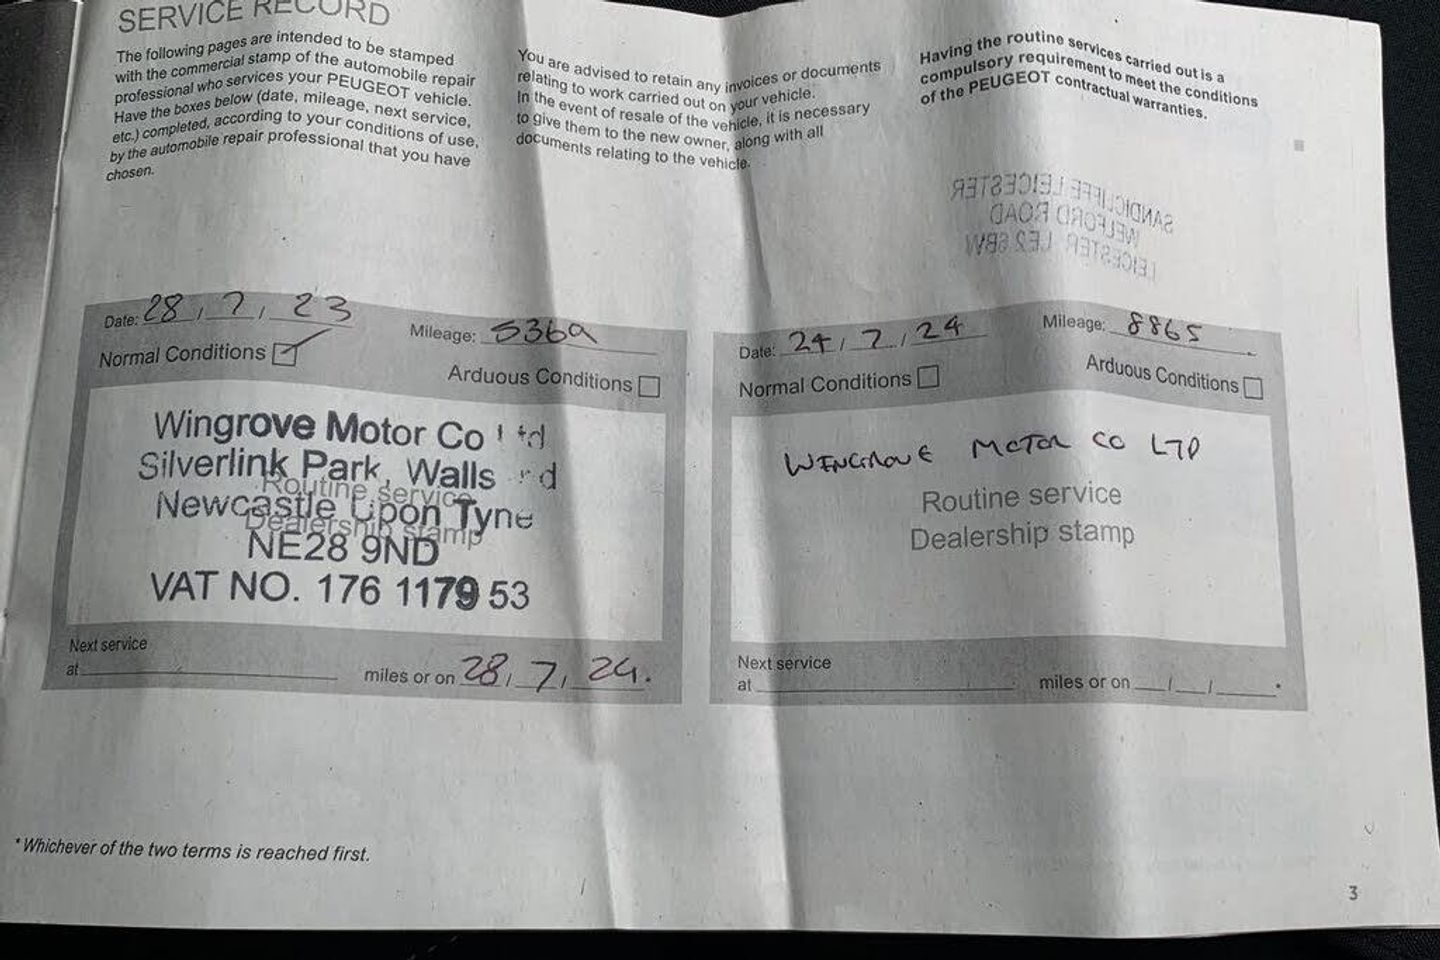 SERVICE RECORD
The following pages are intended to be stamped
with the commercial stamp of the automobile repair
professional who services your PEUGEOT vehicle.
Have the boxes below (date, mileage, next service,
etc.) completed, according to your conditions of use,
by the automobile repair professional that you have
chosen.
You are advised to retain any invoices or documents
relating to work carried out on your vehicle.
In the event of resale of the vehicle, it is necessary
to give them to the new owner, along with all
documents relating to the vehicle.
Having the routine services carried out is a
compulsory requirement to meet the conditions
of the PEUGEOT contractual warranties.
SANDICLIFFE LEICESTER
WELFORD ROAD
LEICESTER LE2 6BW
Date: 28, 7, 23
Mileage: 5369
Normal Conditions
Arduous Conditions
Wingrove Motor Co Ltd
Silverlink Park, Walls d
Routine service
Newcastle Upon Tyne
Dealership stamp
NE28 9ND
VAT NO. 176 1179 53
Next service
at
miles or on 28, 7, 24.
Date: 24, 7, 24
Mileage: 8865
Normal Conditions
Arduous Conditions
WINGROVE MOTOR CO LTD
Routine service
Dealership stamp
Next service
at
miles or on __/__/____*
* Whichever of the two terms is reached first.
3